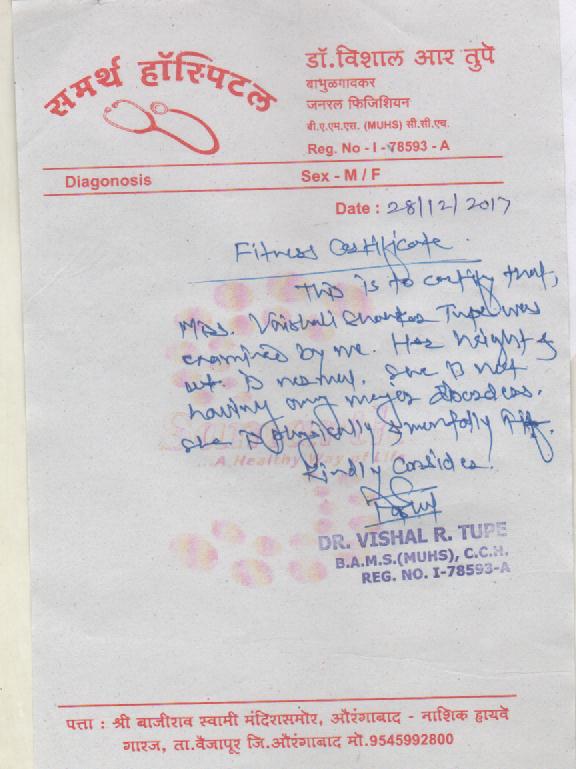 समर्थ हॉस्पिटल
डॉ.विशाल आर तुपे
बाभुळगावकर
जनरल फिजिशियन
बी.ए.एम.एस. (MUHS) सी.सी.एच.
Reg. No - I - 78593 - A
Diagonosis Sex - M / F
Date : 28/12/2017
Fitness Certificate.
This is to certify that,
Miss. Vaishali Shankar Tupe was
examined by me. Her height &
wt. is normal. She is not
having any major
She is physically & mentally fit.
Kindly Consider.
A Healthy Way of Life
DR. VISHAL R. TUPE
B.A.M.S.(MUHS), C.C.H.
REG. NO. I-78593-A
पत्ता : श्री बाजीराव स्वामी मंदिरासमोर, औरंगाबाद - नाशिक हायवे
गारज, ता.वैजापूर जि.औरंगाबाद मों.9545992800